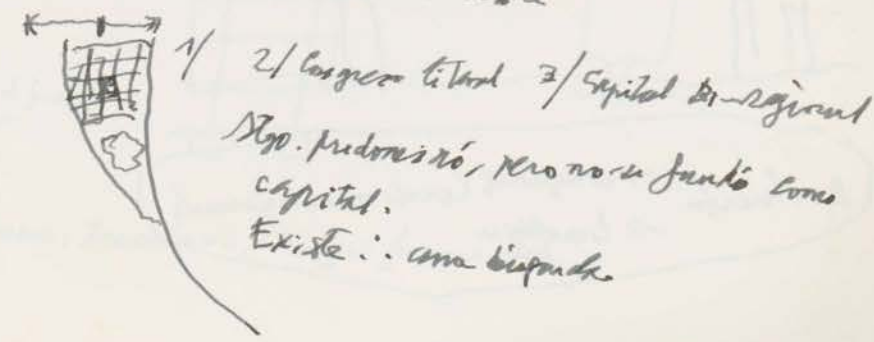 1/ 2/ Congreso litoral 3/ Capital Bi-regional
Stgo. predominó, pero no se fundó como
capital.
Existe ∴ una búsqueda.